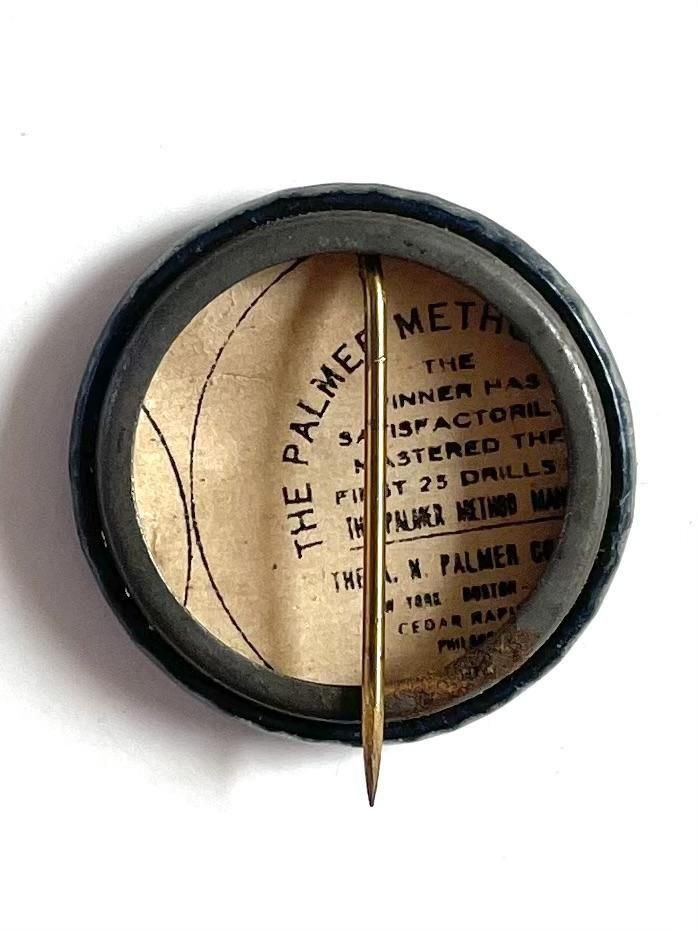 THE PALMER METHO
THE
INNER HAS
SATISFACTORILY
MASTERED THE
FIRST 25 DRILLS
THE PALMER METHOD MAN
THE A. N. PALMER CO
W YORK BOSTON
CEDAR RAPI
PHIL